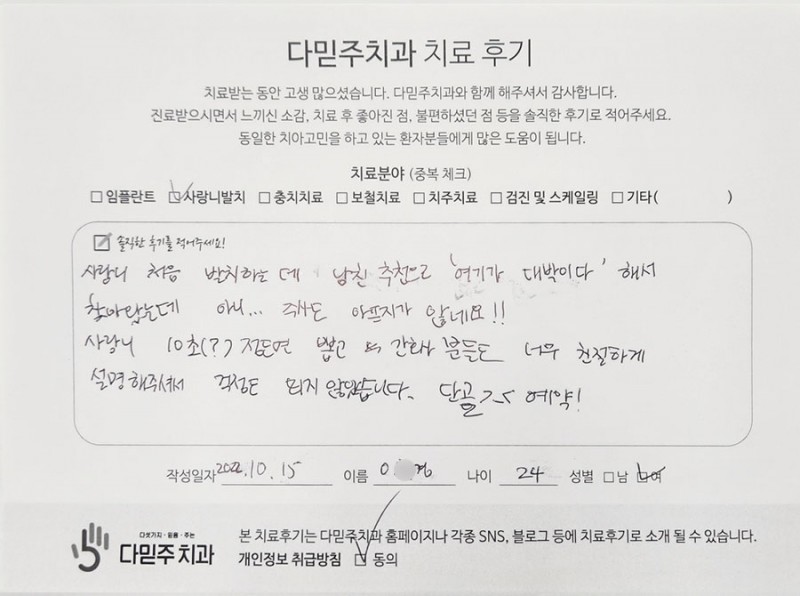 다믿주치과 치료 후기
치료받는 동안 고생 많으셨습니다. 다믿주치과와 함께 해주셔서 감사합니다.
진료받으시면서 느끼신 소감, 치료 후 좋아진 점, 불편하셨던 점 등을 솔직한 후기로 적어주세요.
동일한 치아고민을 하고 있는 환자분들에게 많은 도움이 됩니다.
치료분야 (중복 체크)
□ 임플란트 ☑ 사랑니발치 □ 충치치료 □ 보철치료 □ 치주치료 □ 검진 및 스케일링 □ 기타( )
솔직한 후기를 적어주세요!
사랑니 처음 발치하는데 남친 추천으로 '여기가 대박이다' 해서
찾아왔는데 아니... 주사도 아프지가 않네요!!
사랑니 10초(??) 정도면 뽑고 간호사 분들도 너무 친절하게
설명해주셔서 걱정도 되지 않았습니다. 단골 예약!
작성일자 2022.10.15 이름 나이 24 성별 □ 남 ☑ 여
다섯가지·믿음·주는
다믿주치과
본 치료후기는 다믿주치과 홈페이지나 각종 SNS, 블로그 등에 치료후기로 소개 될 수 있습니다.
개인정보 취급방침 ☑ 동의